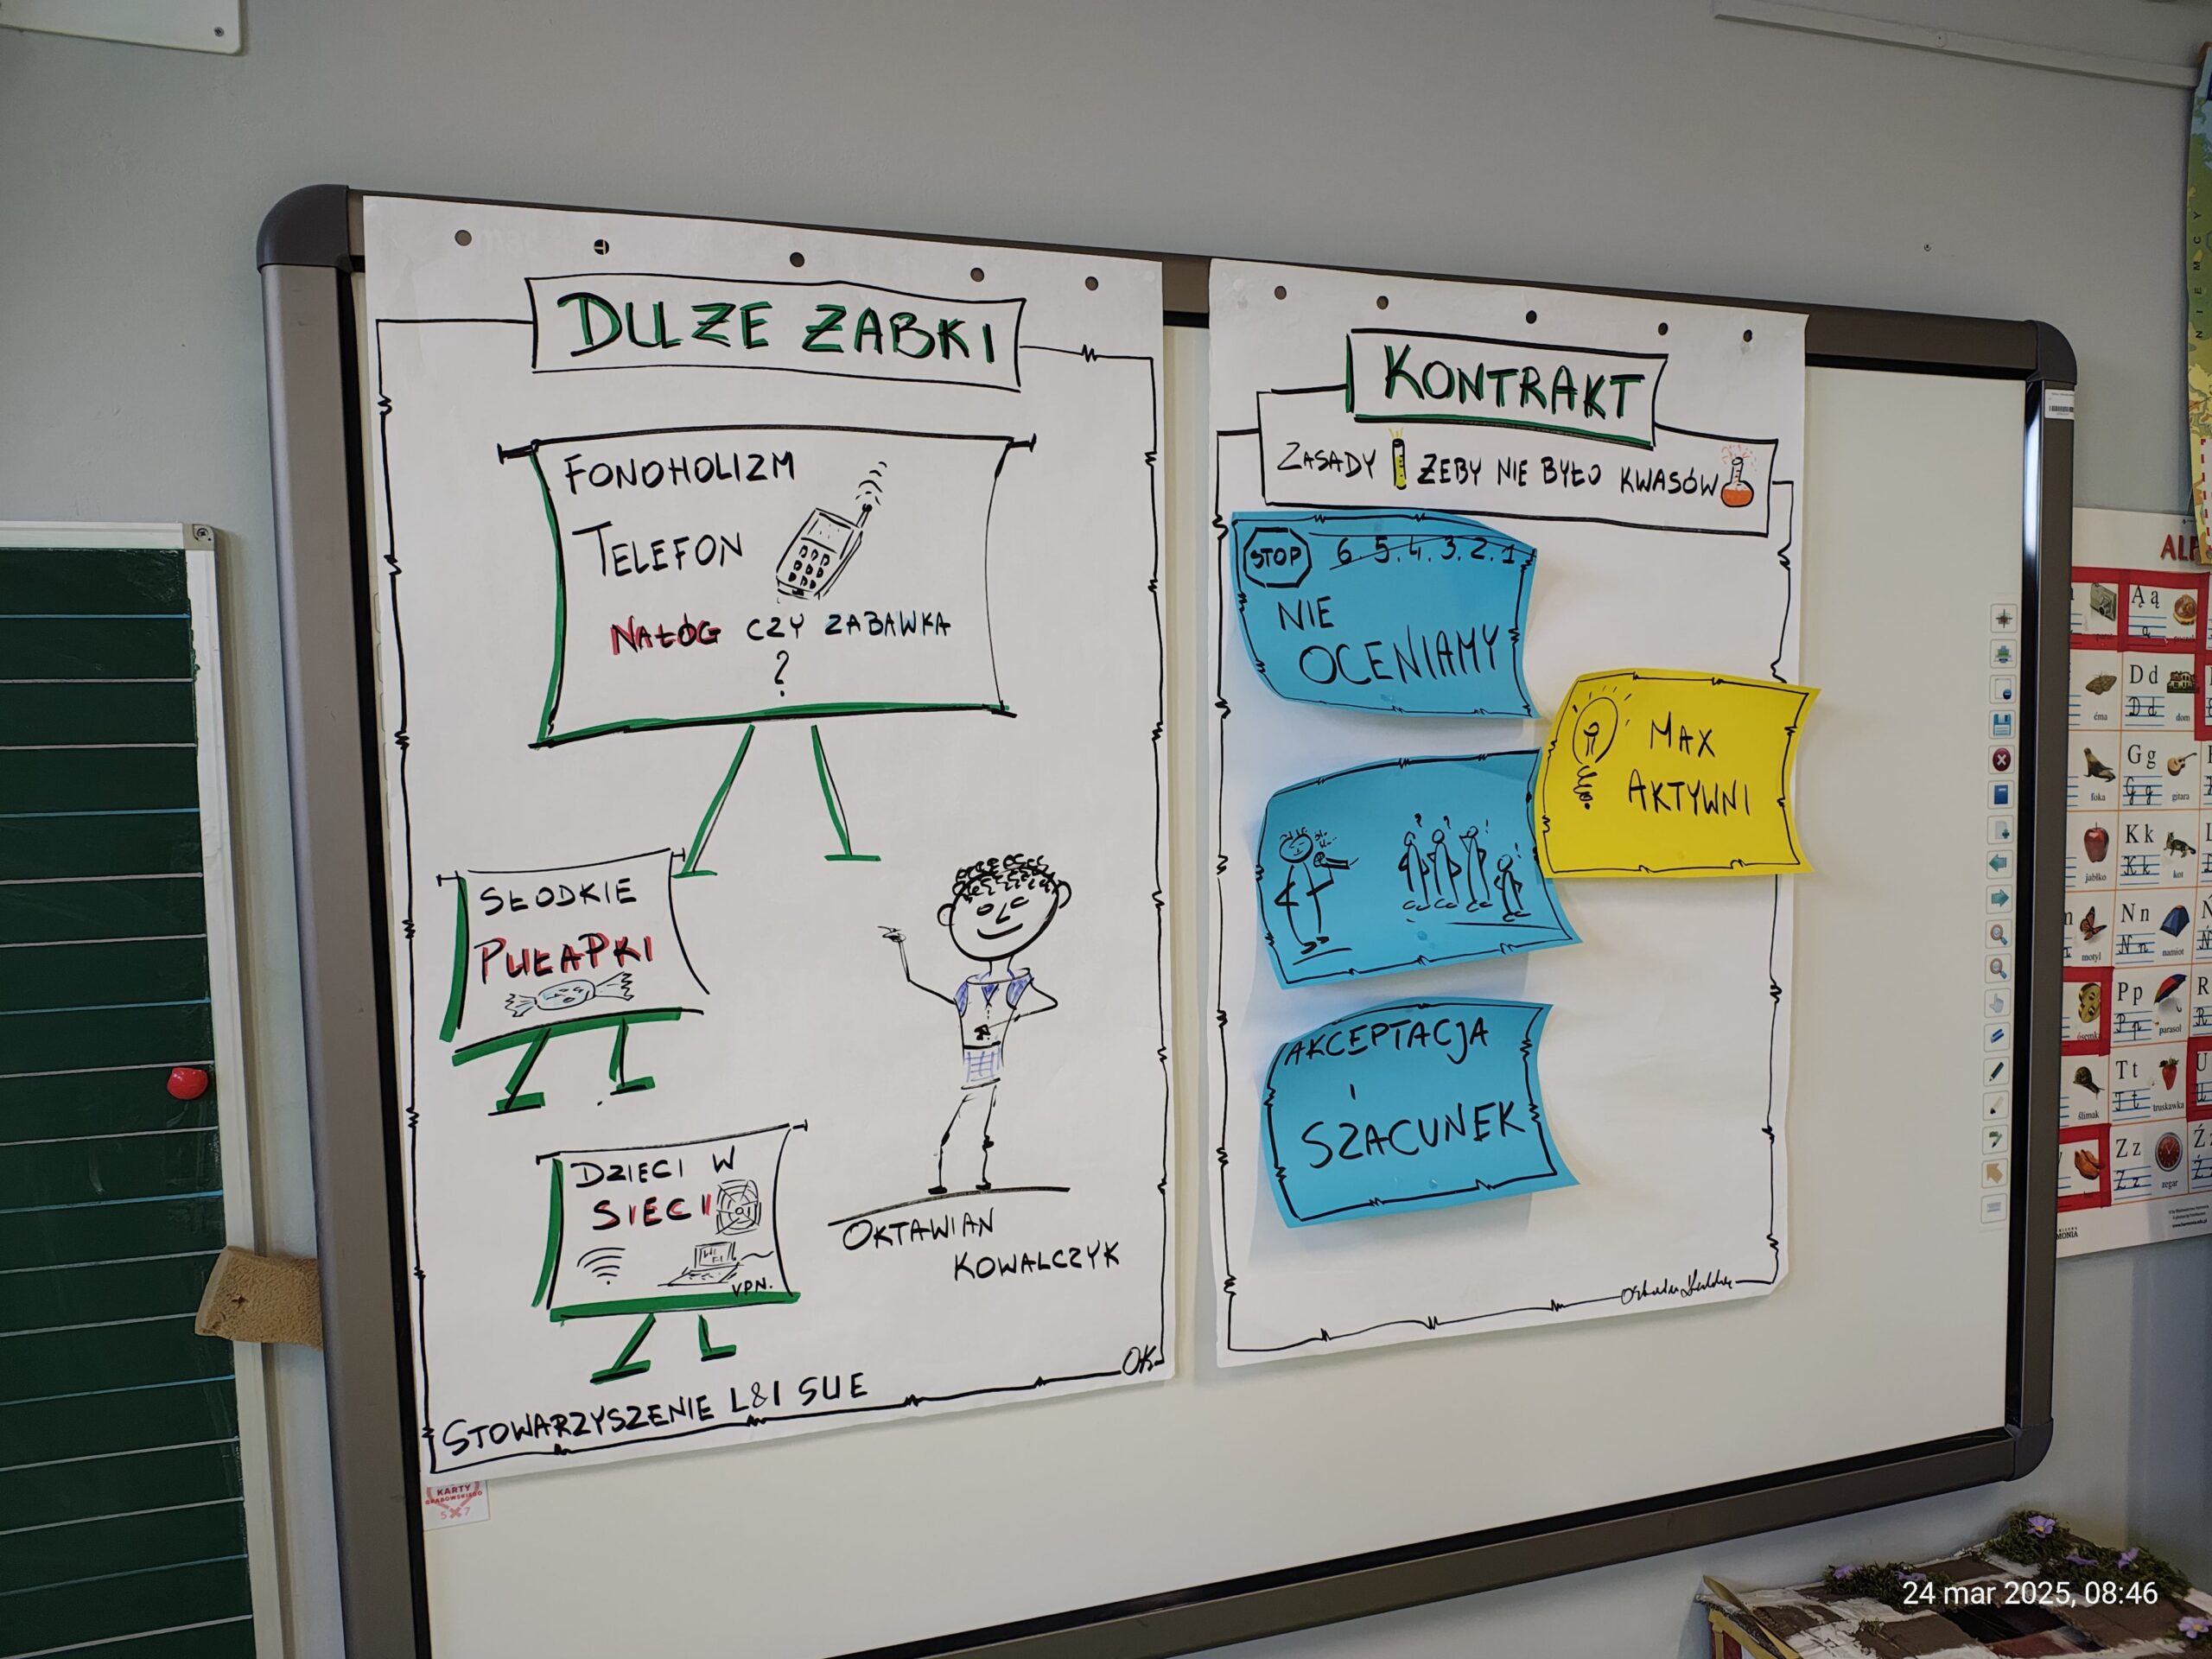 DUZE ZABKI
FONOHOLIZM
TELEFON
NAŁÓG CZY ZABAWKA
?
SŁODKIE
PUŁAPKI
DZIECI W
SIECI
VPN.
OKTAWIAN
KOWALCZYK
STOWARZYSZENIE L&I SUE
OK
KONTRAKT
ZASADY ŻEBY NIE BYŁO KWASÓW
STOP 6. 5. 4. 3. 2. 1
NIE
OCENIAMY
MAX
AKTYWNI
AKCEPTACJA
I
SZACUNEK
KARTY
GRABOWSKIEGO
5x7
NIEMCY
ALF
Ą ą
ćma
D d
dom
foka
G g
gitara
jabłko
K k
kot
motyl
N n
namiot
P p
parasol
R
ślimak
T t
truskawka
U
Z z
zegar
24 mar 2025, 08:46